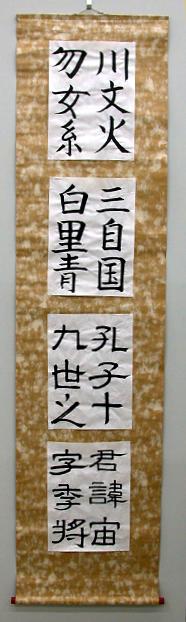 川文火
勿女系
三自国
白里青
孔子十
九世之
君諱宙
字季将